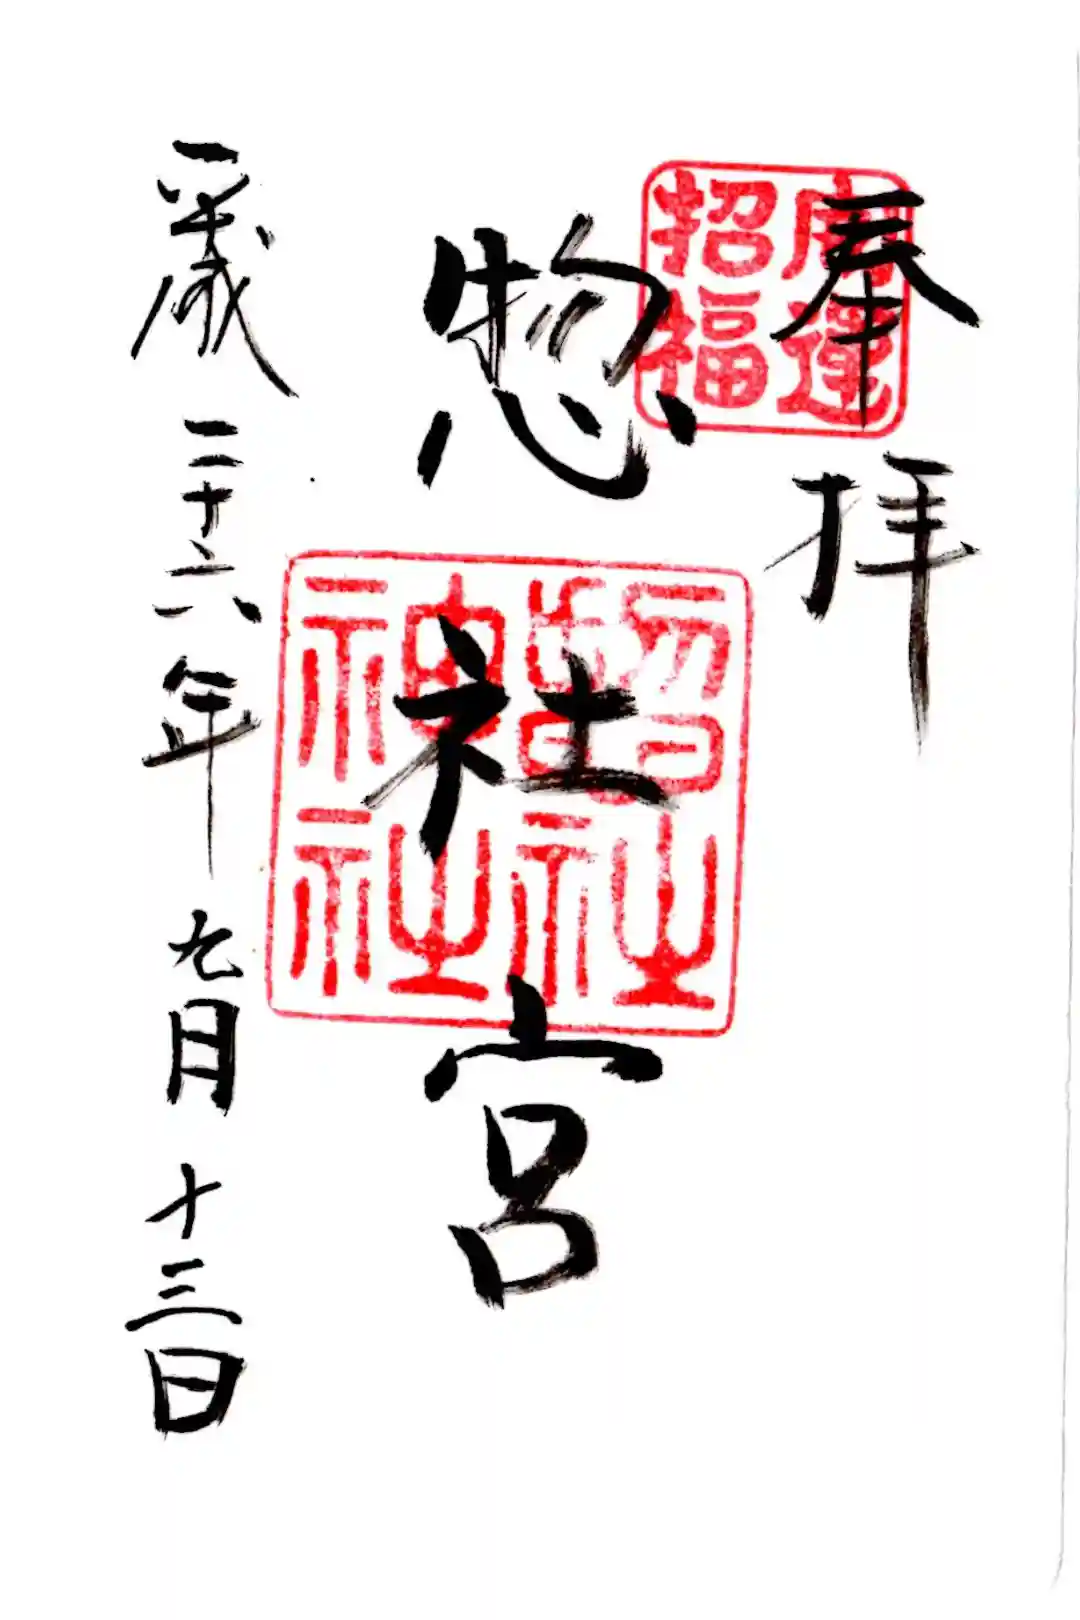 奉拝
開運
招福
惣社宮
惣社
神社
平成二十六年九月十三日